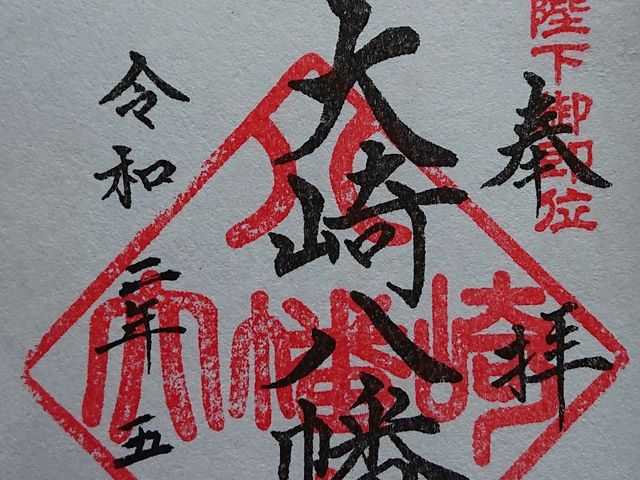 陛下御即位
奉拝
大崎八幡
令和二年五
八
大幡崎